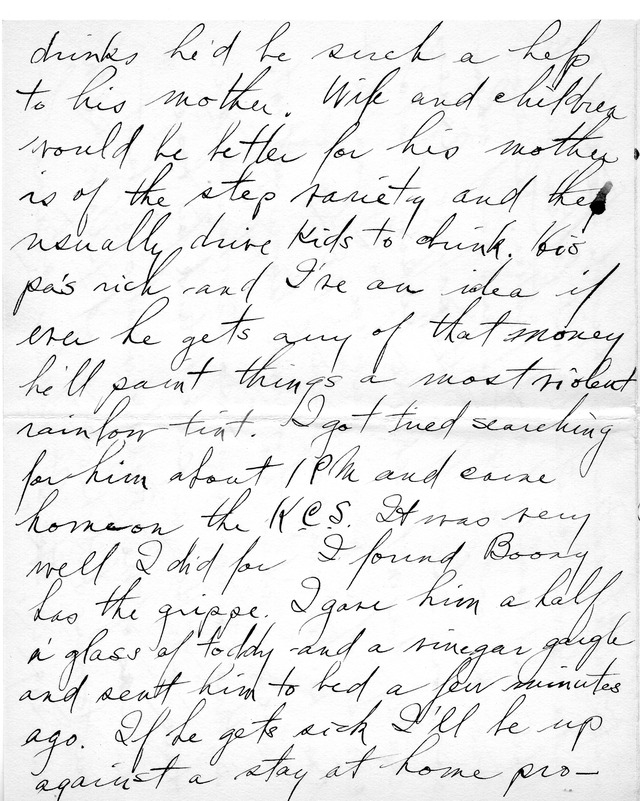 drinks he'd be such a help
to his mother. Wife and children
would be better for his mother
is of the step variety and they
usually drive kids to drink. His
pa's rich and I've an idea if
ever he gets any of that money
he'll paint things a most violent
rainbow tint. I got tired searching
for him about 1 PM and came
home on the K.C.S. It was very
well I did for I found Boosy
has the grippe. I gave him a half
a glass of toddy and a vinegar gargle
and sent him to bed a few minutes
ago. If he gets sick I'll be up
against a stay at home pro-